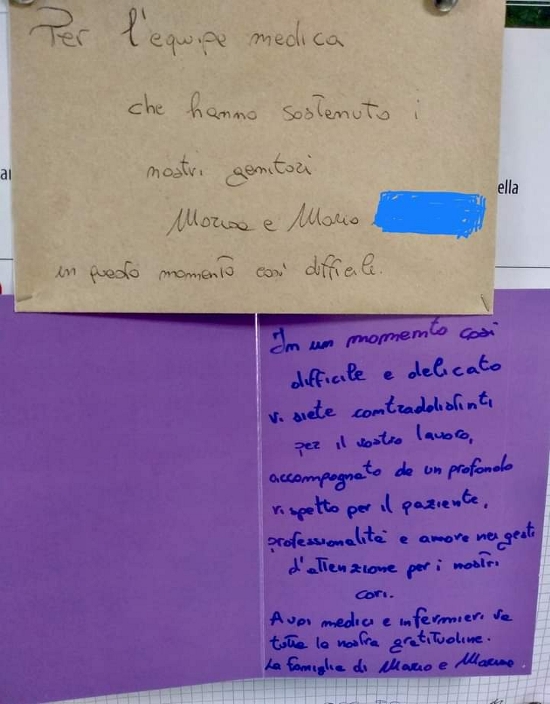 Per l'equipe medica
che hanno sostenuto i
nostri genitori
Marisa e Mario
in questo momento così difficile.
ella
In un momento così
difficile e delicato
vi siete contraddistinti
per il vostro lavoro,
accompagnato da un profondo
rispetto per il paziente,
professionalità e amore nei gesti
d'attenzione per i nostri
cari.
A voi medici e infermieri va
tutta la nostra gratitudine.
La famiglia di Mario e Marisa